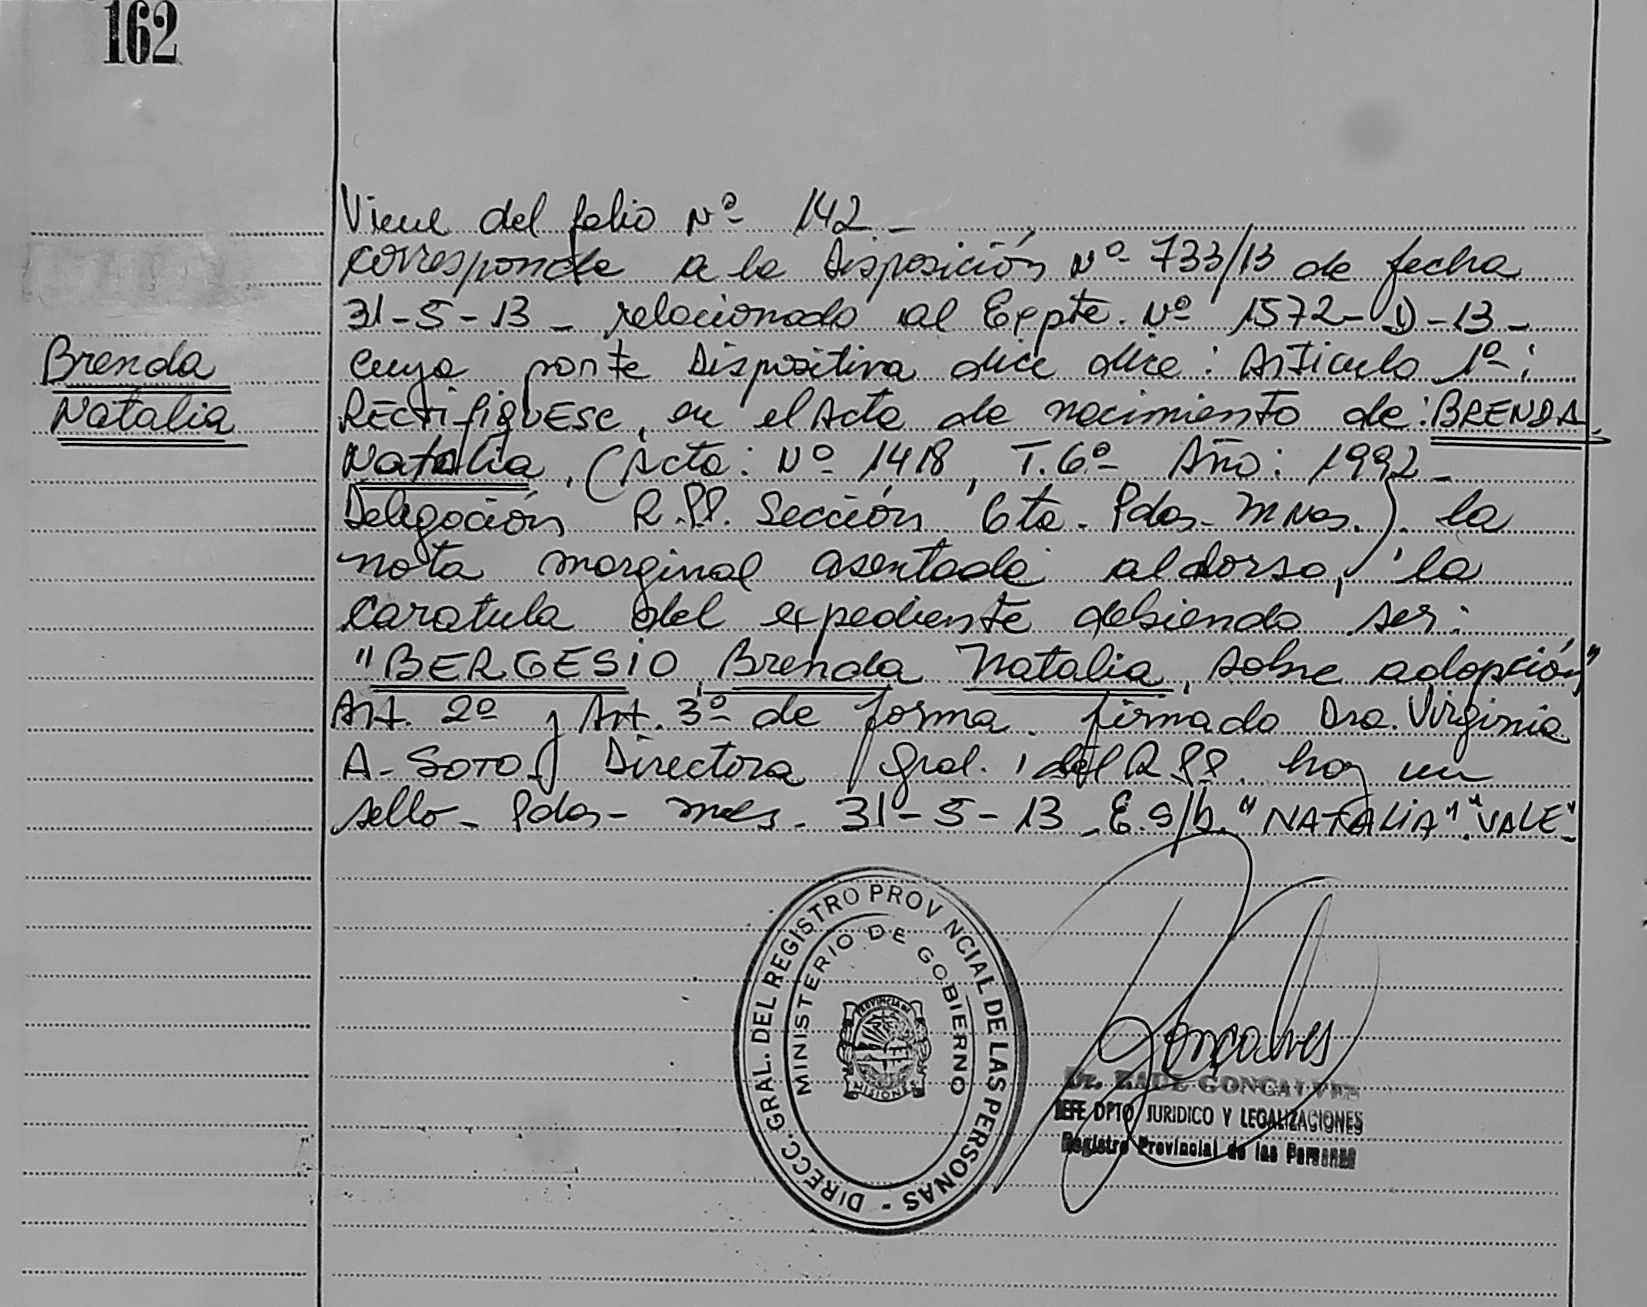 162
Viene del folio Nº 142 -
corresponde a la Disposición Nº 733/13 de fecha
31-5-13 - relacionado al Expte. Nº 1572-D-13-
cuya parte Dispositiva dice dice: Articulo 1º:
RECTIFIQUESE, en el Acta de nacimiento de: BRENDA
Natalia, (Acta: Nº 1418, T. 6º Año: 1992-
Delegación R.P.P. Sección 6ta. Pdas. Mnes.) la
nota marginal asentada al dorso, la
caratula del expediente debiendo ser:
"BERGESIO, Brenda Natalia, sobre adopción"
Art. 2º y Art. 3º de forma. firmado Dra. Virginia
A. SOTO, Directora Gral. del R.P.P. hay un
sello - Pdas - Mnes. 31-5-13 - E.S/b. "NATALIA". "VALE"-
Brenda
Natalia
DIRECC. GRAL. DEL REGISTRO PROVINCIAL DE LAS PERSONAS -
MINISTERIO DE GOBIERNO
PROVINCIA DE
MISIONES
Goncalves
Dr. RAUL GONCALVES
JEFE DPTO. JURIDICO Y LEGALIZACIONES
Registro Provincial de las Personas